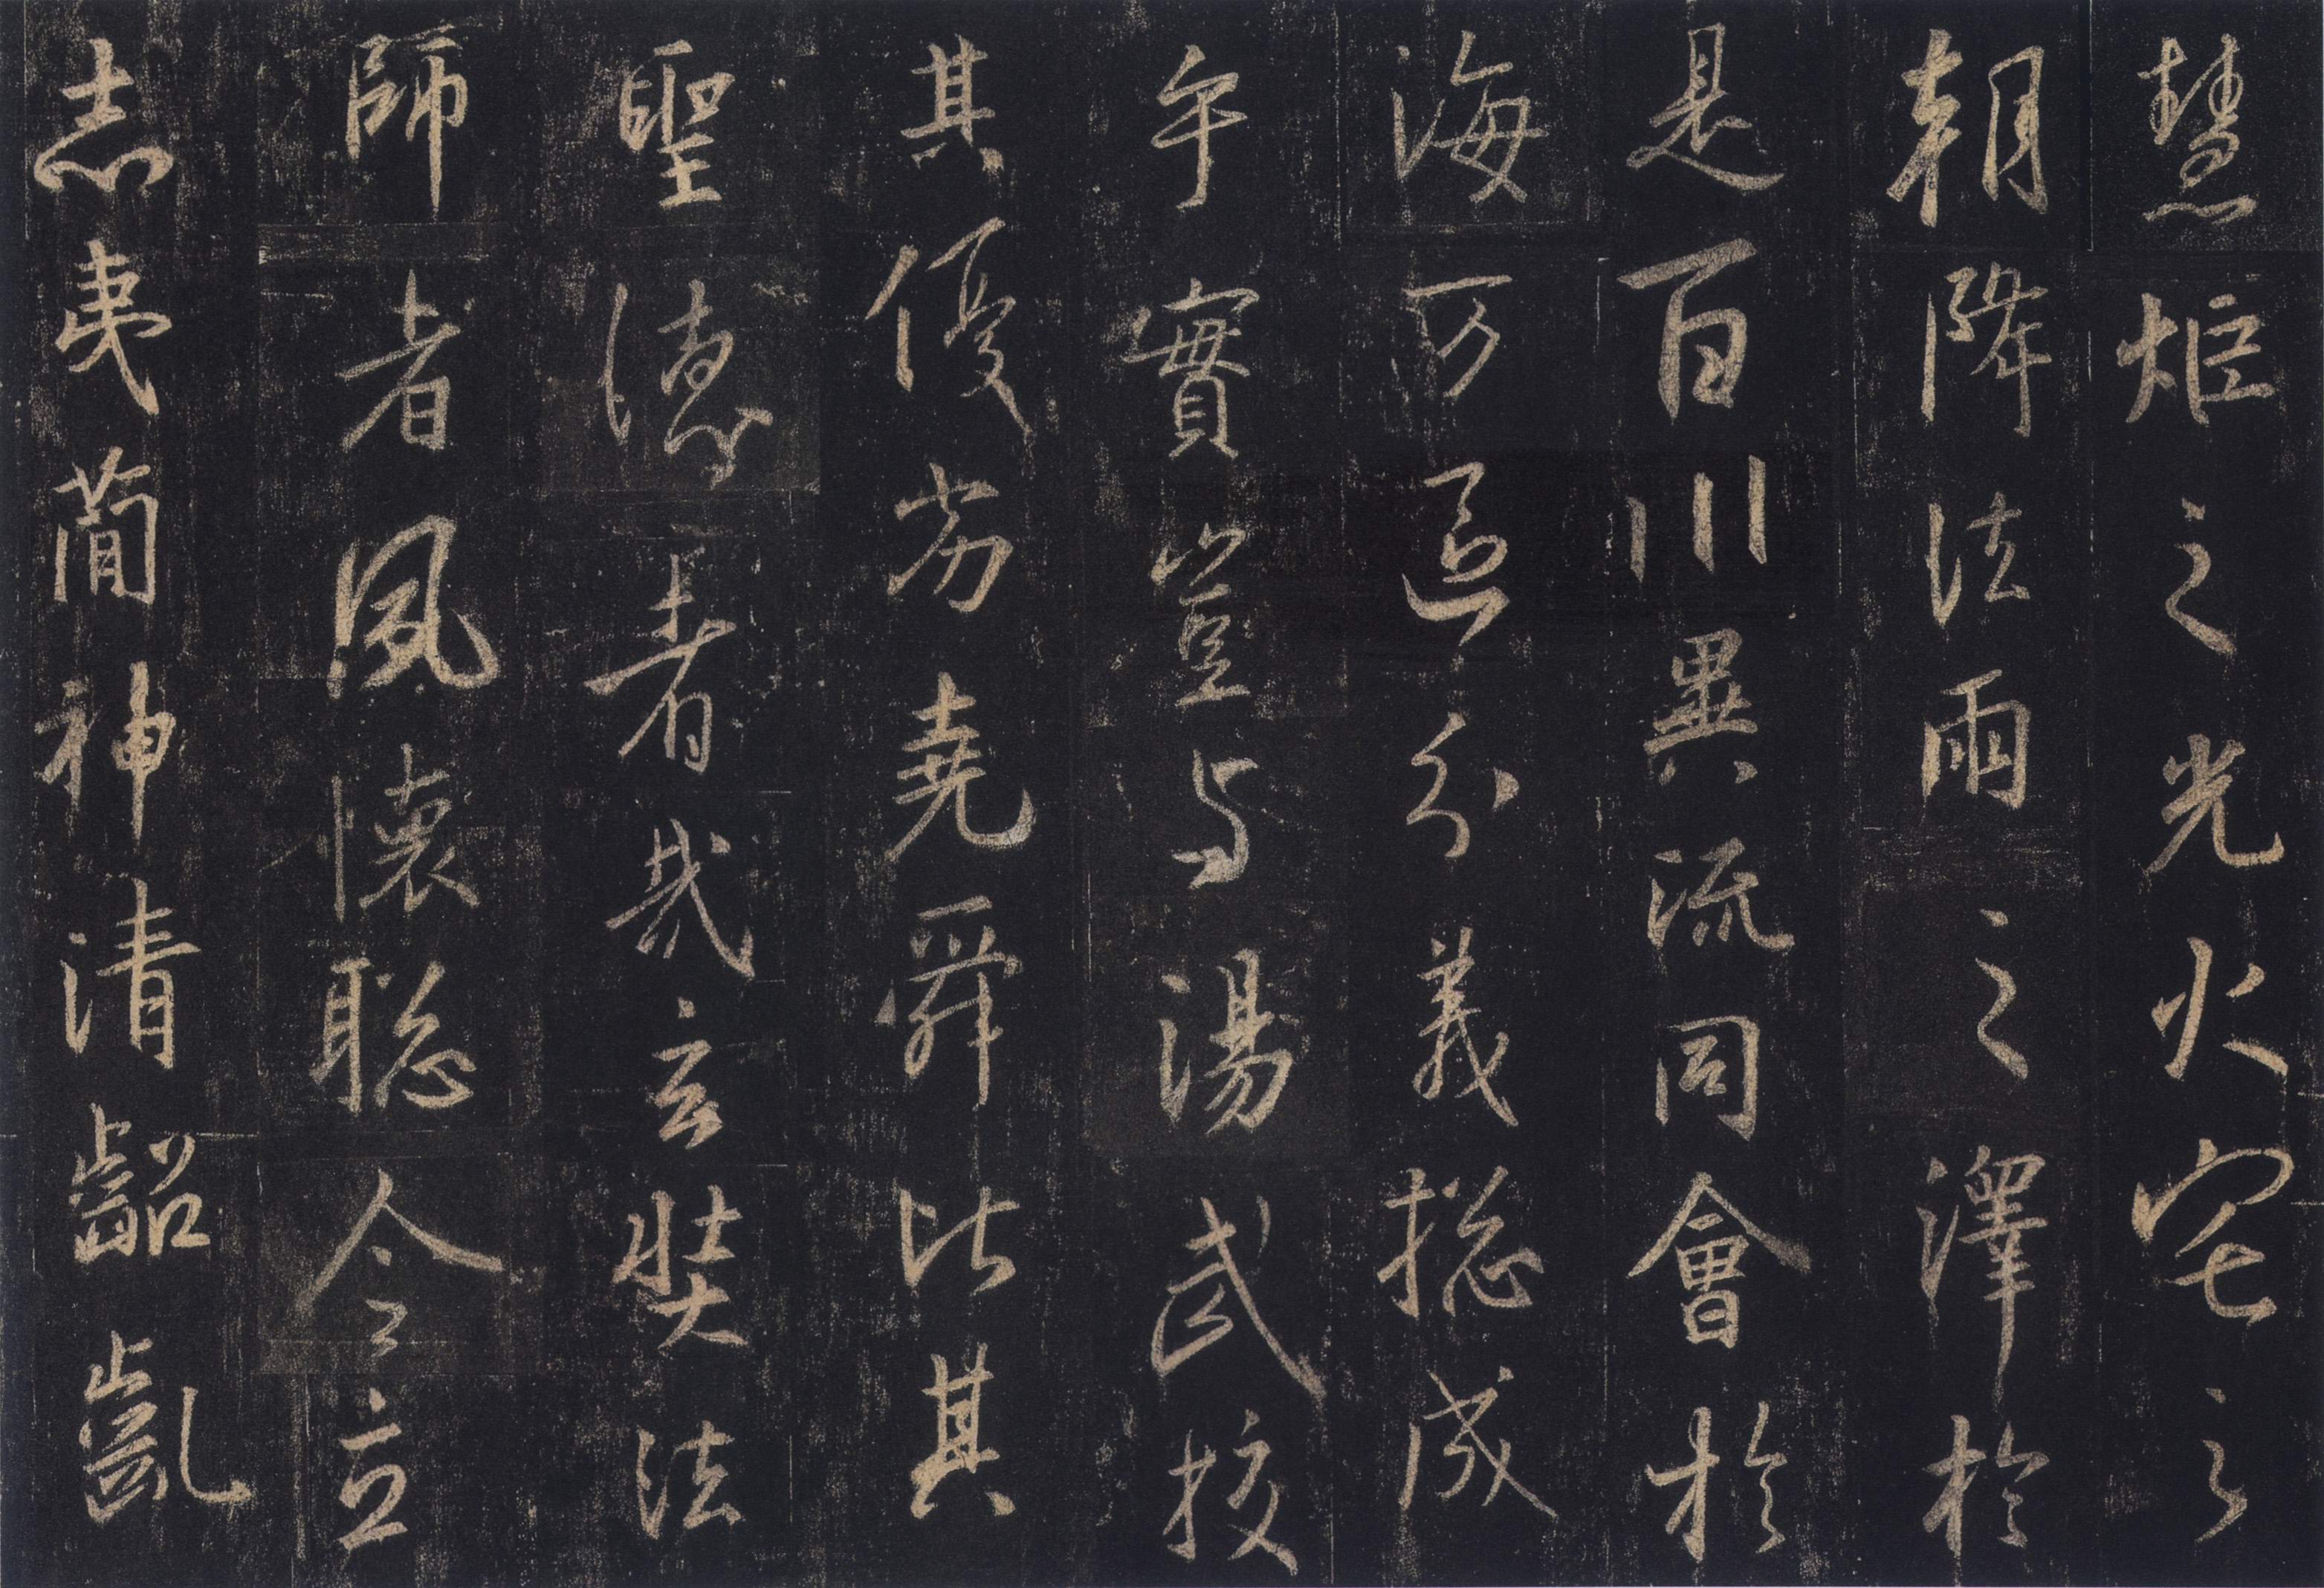 慧炬之光火宅之
朝降法雨之澤於
是百川異流同會於
海万區分義捴成
乎實豈与湯武校
其優劣堯舜比其
聖德者哉玄奘法
師者夙懷聦令立
志夷蕳神清齠齔